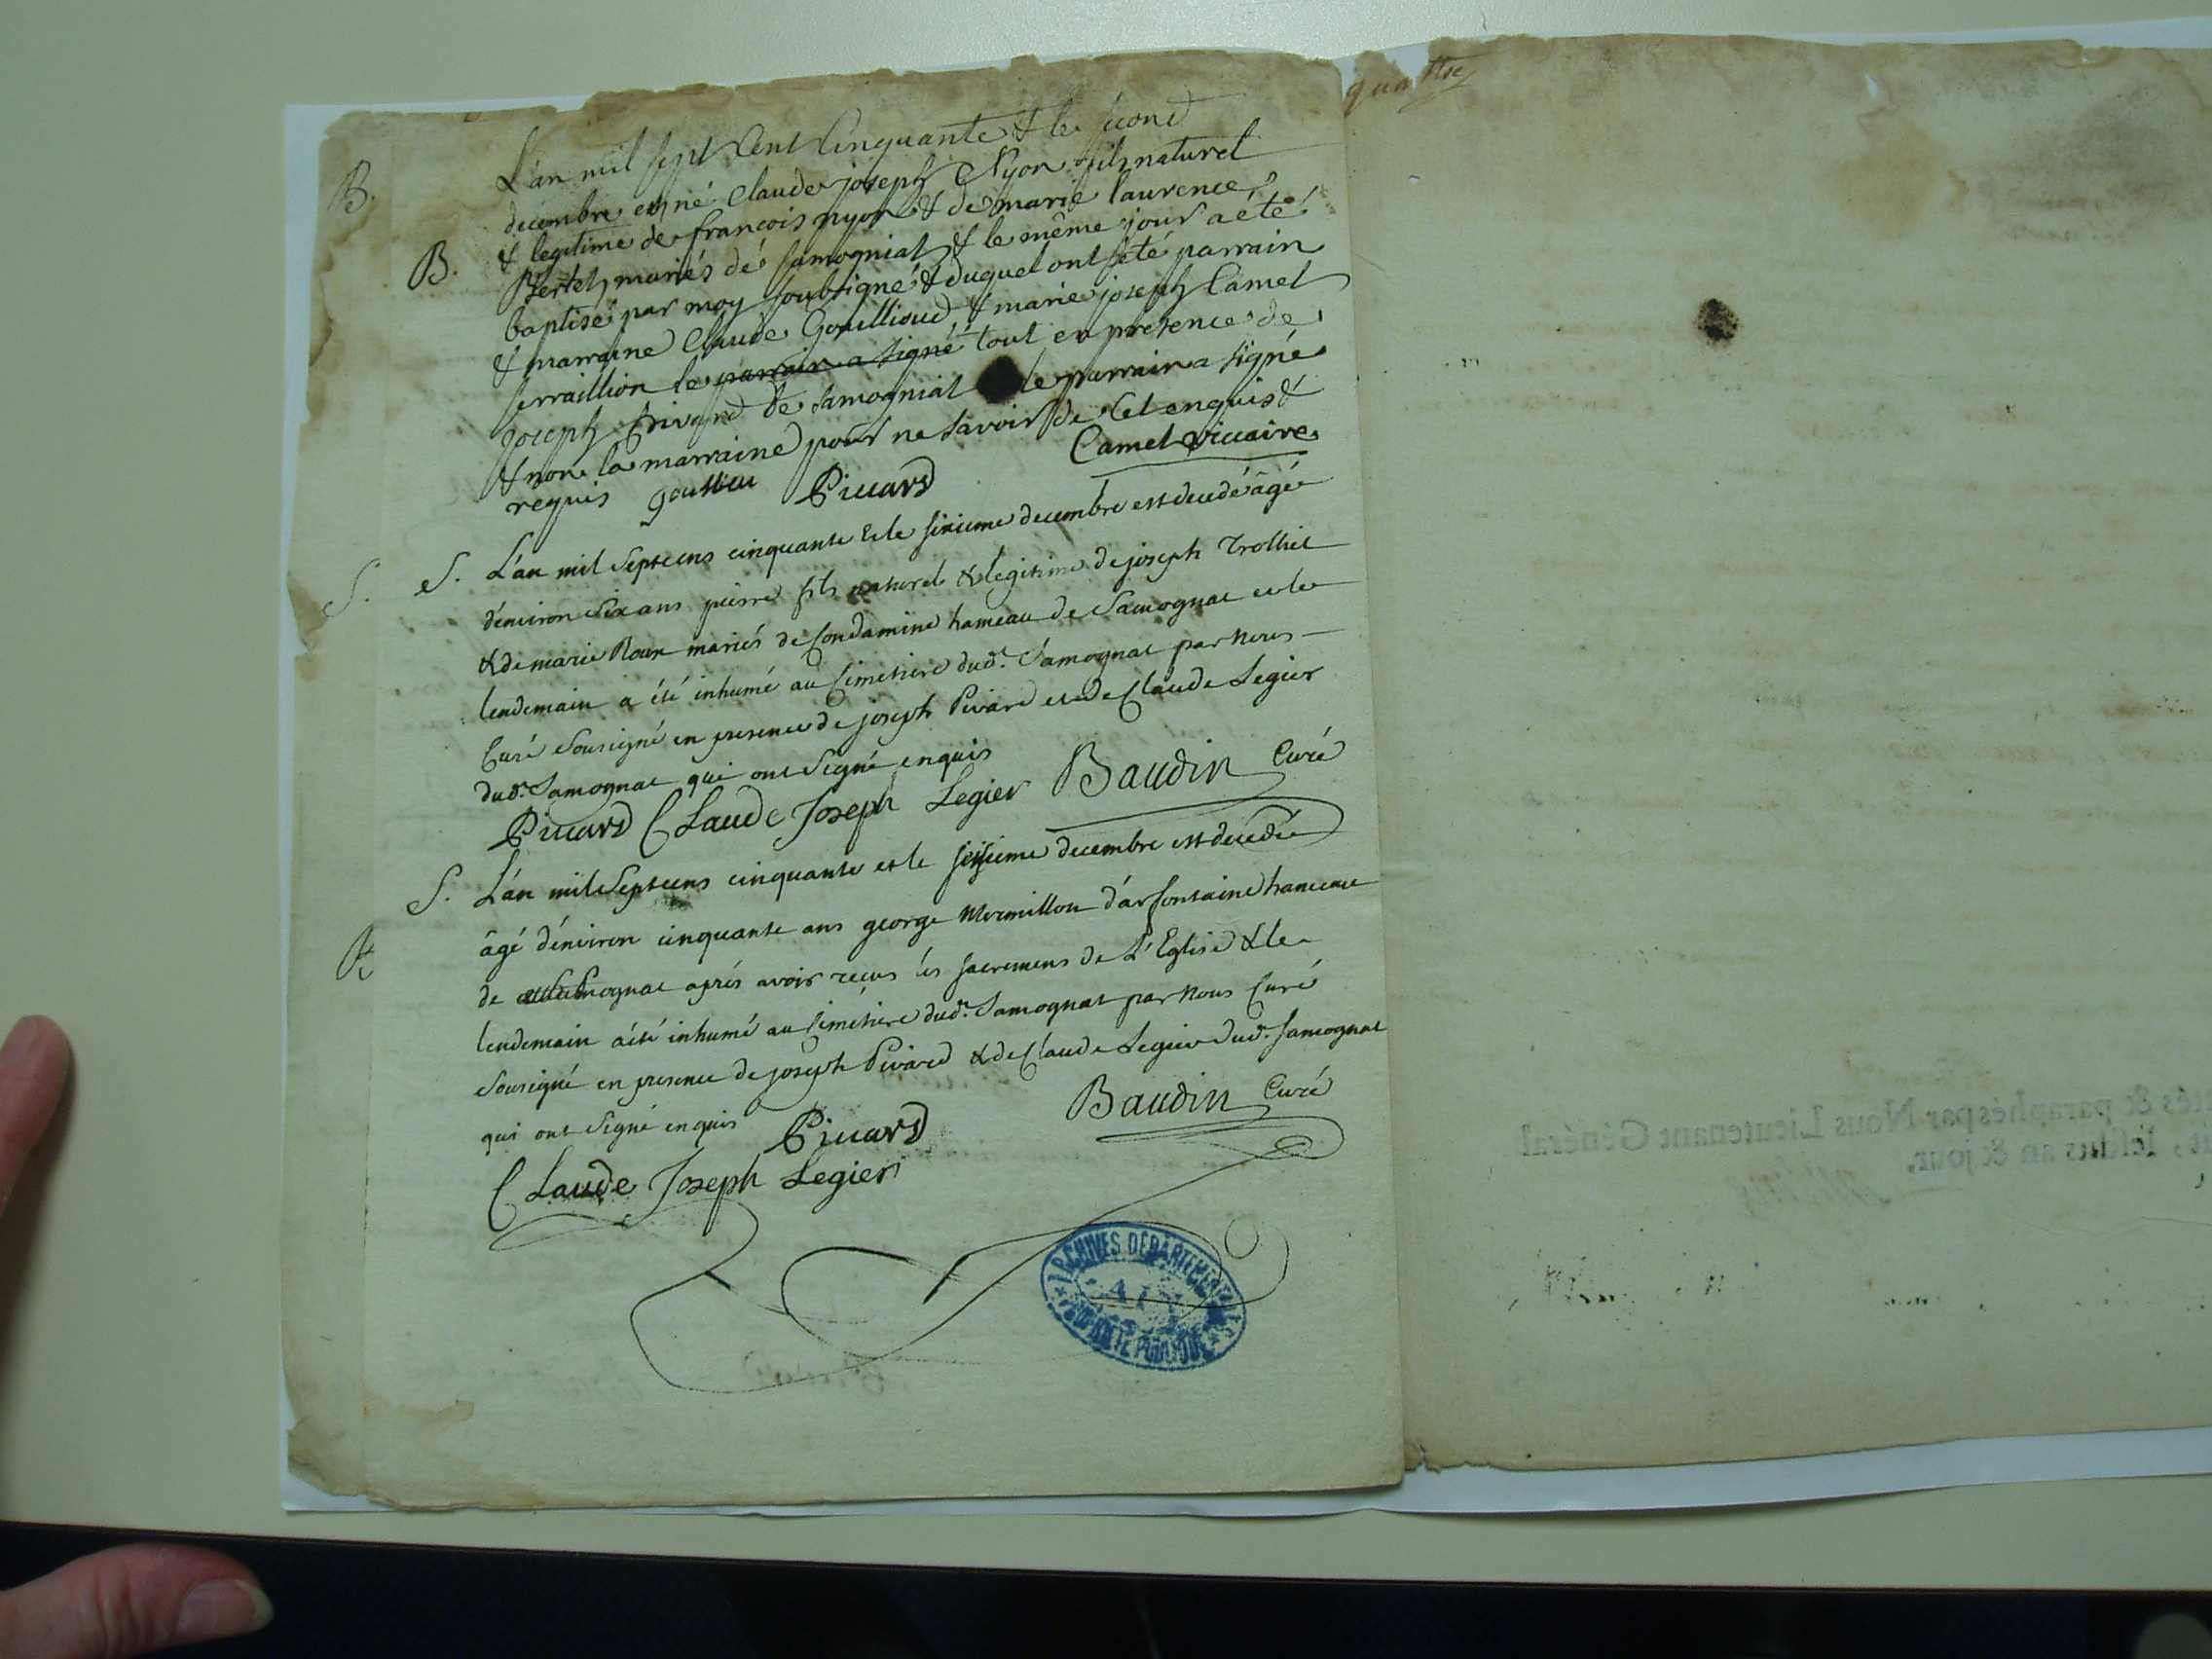 quattre
B.
L'an mil sept Cent Cinquante & le second
decembre est né Claude joseph Nyon fils naturel
B.
& legitime de francois nyon & de marie laurence
Bertet mariés de samogniat & le même jour a été
baptisé par moy soubsigné & duquel ont été parrain
& marraine Claude Gouillioud & marie joseph Camel
serraillion le parrain a signé tout en presence de
joseph Pivard de Samogniat le parrain a signé
& non la marraine pour ne savoir de Cet enquis &
requis Pivard Camel vicaire
S.
S. L'an mil Septcens cinquante & le sixieme decembre est decedé âgé
d'environ six ans pierre fils naturel & legitime de joseph Trolliet
& de marie Roux mariés de Condamine hameau de Samognat et le
lendemain a été inhumé au Cimetiere dud.t Samognat par Nous
Curé Sousigné en presence de joseph Pivard et de Claude Legier
dud.t Samognat qui ont Signé enquis
Pivard Claude Joseph Legier Baudin Curé
S. L'an mil Septcens cinquante et le sixieme decembre est decedé
âgé d'environ cinquante ans george Mermillon d'arfontaine hameau
de Samognat aprés avoir reçus les sacremens de L'Eglise & le
lendemain a été inhumé au Cimetiere dud.t Samognat par Nous Curé
Sousigné en presence de joseph Pivard & de Claude Legier dud.t Samognat
qui ont Signé enquis Pivard Baudin Curé
Claude Joseph Legier
ARCHIVES DÉPARTEMENTALES
AIN
PROPRIÉTÉ PUBLIQUE
& paraphés par Nous Lieutenant Général
, lesdits an & jour.